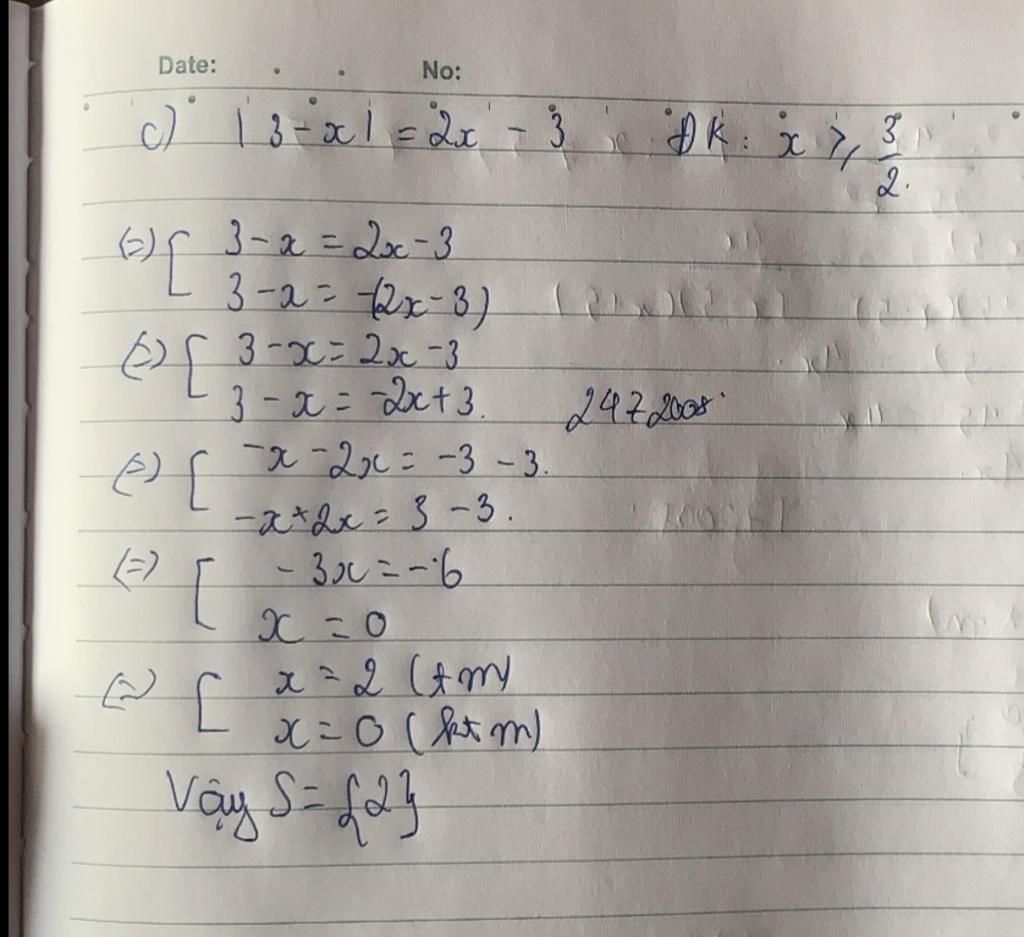 Date: No:
c) |3 - x| = 2x - 3 ĐK: x ⩾ 3/2.
(=) [ 3 - x = 2x - 3
3 - x = -(2x - 3)
(=) [ 3 - x = 2x - 3
3 - x = -2x + 3. 2472008
(=) [ -x - 2x = -3 - 3.
-x + 2x = 3 - 3.
(=) [ - 3x = -6
x = 0
(=) [ x = 2 (tm)
x = 0 (ktm)
Vậy S = {2}